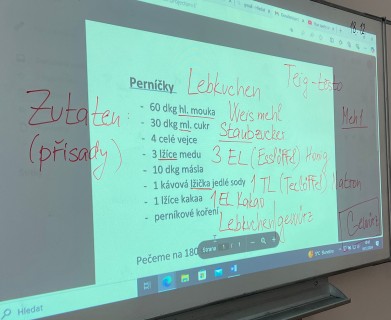 18.12.
Perníčky Lebkuchen Teig-těsto
Zutaten:
(přísady)
- 60 dkg hl. mouka Weismehl Mehl
- 30 dkg ml. cukr Staubzucker
- 4 celé vejce
- 3 lžíce medu 3 EL (Esslöffel) Honig
- 10 dkg másla
- 1 kávová lžička jedlé sody 1 TL (Teelöffel) Natron
- 1 lžíce kakaa 1 EL Kakao
- perníkové koření Lebkuchengewürz Gewürz
Pečeme na 180
Hledat